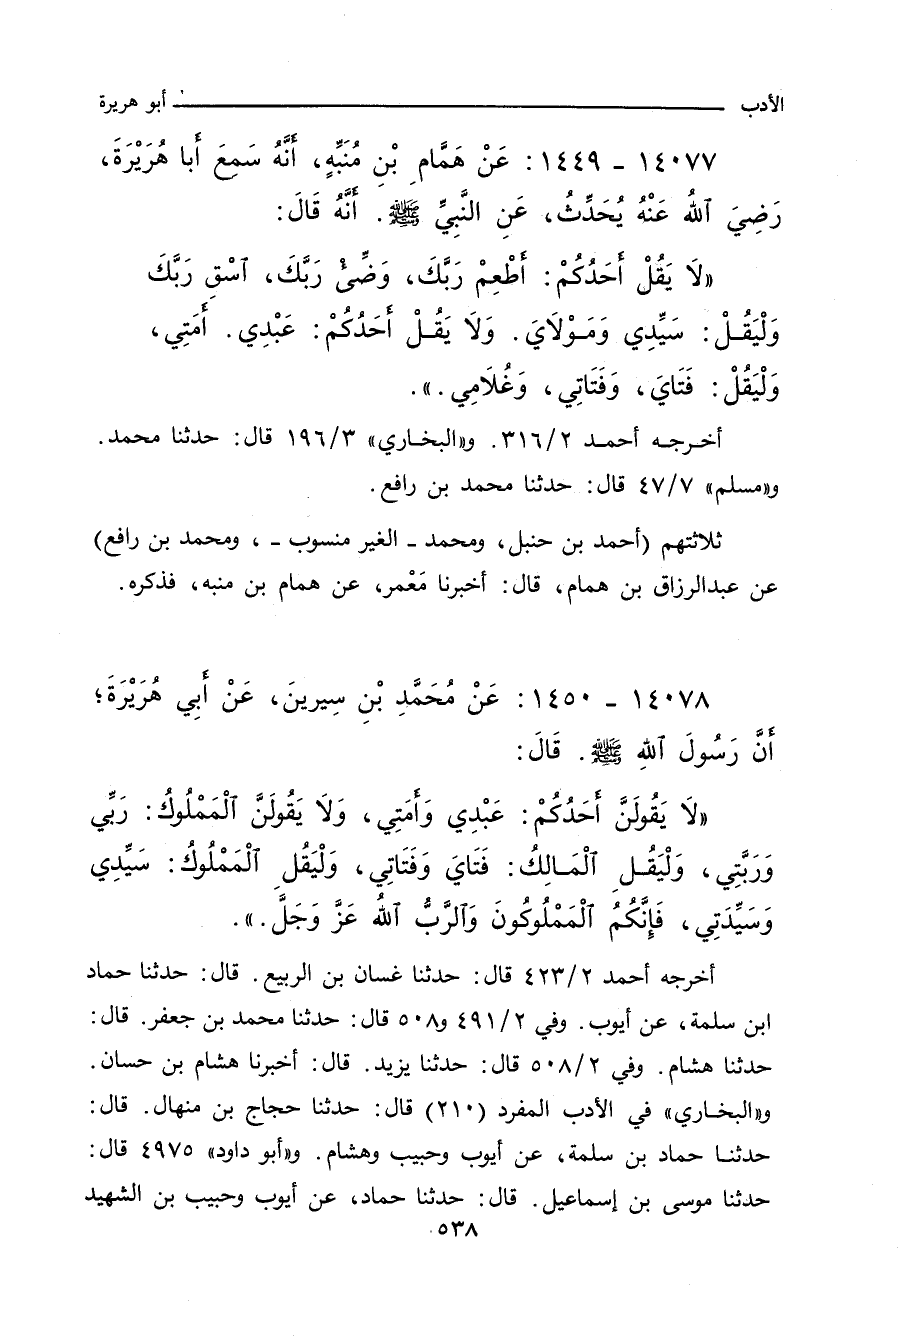 الأدب ــــــ أبو هريرة
١٤٠٧٧ ـ ١٤٤٩ : عَنْ هَمَّامِ بْنِ مُنَبِّهٍ، أَنَّهُ سَمِعَ أَبا هُرَيْرَةَ،
رَضِيَ ٱللهُ عَنْهُ يُحَدِّثُ، عَنِ النَّبِيِّ ﷺ. أَنَّهُ قَالَ:
«لَا يَقُلْ أَحَدُكُمْ: أَطْعِمْ رَبَّكَ، وَضِّىْٔ رَبَّكَ، ٱسْقِ رَبَّكَ
وَلْيَقُـلْ: سَيِّدِي وَمَـوْلَايَ. وَلَا يَقُـلْ أَحَدُكُمْ: عَبْدِي. أَمَتِي،
وَلْيَقُلْ: فَتَايَ، وَفَتَاتِي، وَغُلَامِي.».
أخـرجـه أحمـد ٣١٦/٢. و«البخـاري» ١٩٦/٣ قال: حدثنا محمد.
و«مسلم» ٤٧/٧ قال: حدثنا محمد بن رافع.
ثلاثتهم (أحمد بن حنبل، ومحمد ـ الغير منسوب ـ ، ومحمد بن رافع)
عن عبدالرزاق بن همام، قال: أخبرنا مَعْمر، عن همام بن منبه، فذكره.
١٤٠٧٨ ـ ١٤٥٠ : عَنْ مُحَمَّدِ بْنِ سِيرِينَ، عَنْ أَبِي هُرَيْرَةَ؛
أَنَّ رَسُولَ ٱللهِ ﷺ. قَالَ:
«لَا يَقُولَنَّ أَحَدُكُمْ: عَبْدِي وَأَمَتِي، وَلَا يَقُولَنَّ ٱلْمَمْلُوكُ: رَبِّي
وَرَبَّتِي، وَلْيَقُـلِ ٱلْمَـالِكُ: فَتَايَ وَفَتَاتِي، وَلْيَقُلِ ٱلْمَمْلُوكُ: سَيِّدِي
وَسَيِّدَتِي، فَإِنَّكُمُ ٱلْمَمْلُوكُونَ وَٱلرَّبُّ ٱللهُ عَزَّ وَجَلَّ.».
أخرجه أحمد ٤٢٣/٢ قال: حدثنا غسان بن الربيع. قال: حدثنا حماد
ابن سلمة، عن أيوب. وفي ٤٩١/٢ و٥٠٨ قال: حدثنا محمد بن جعفر. قال:
حدثنا هشام. وفي ٥٠٨/٢ قال: حدثنا يزيد. قال: أخبرنا هشام بن حسان.
و«البخـاري» في الأدب المفرد (٢١٠) قال: حدثنا حجاج بن منهال. قال:
حدثنـا حماد بن سلمة، عن أيوب وحبيب وهشام. و«أبو داود» ٤٩٧٥ قال:
حدثنا موسى بن إسماعيل. قال: حدثنا حماد، عن أيوب وحبيب بن الشهيد
٥٣٨